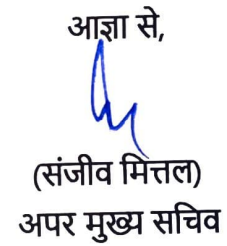 आज्ञा से,
(संजीव मित्तल)
अपर मुख्य सचिव